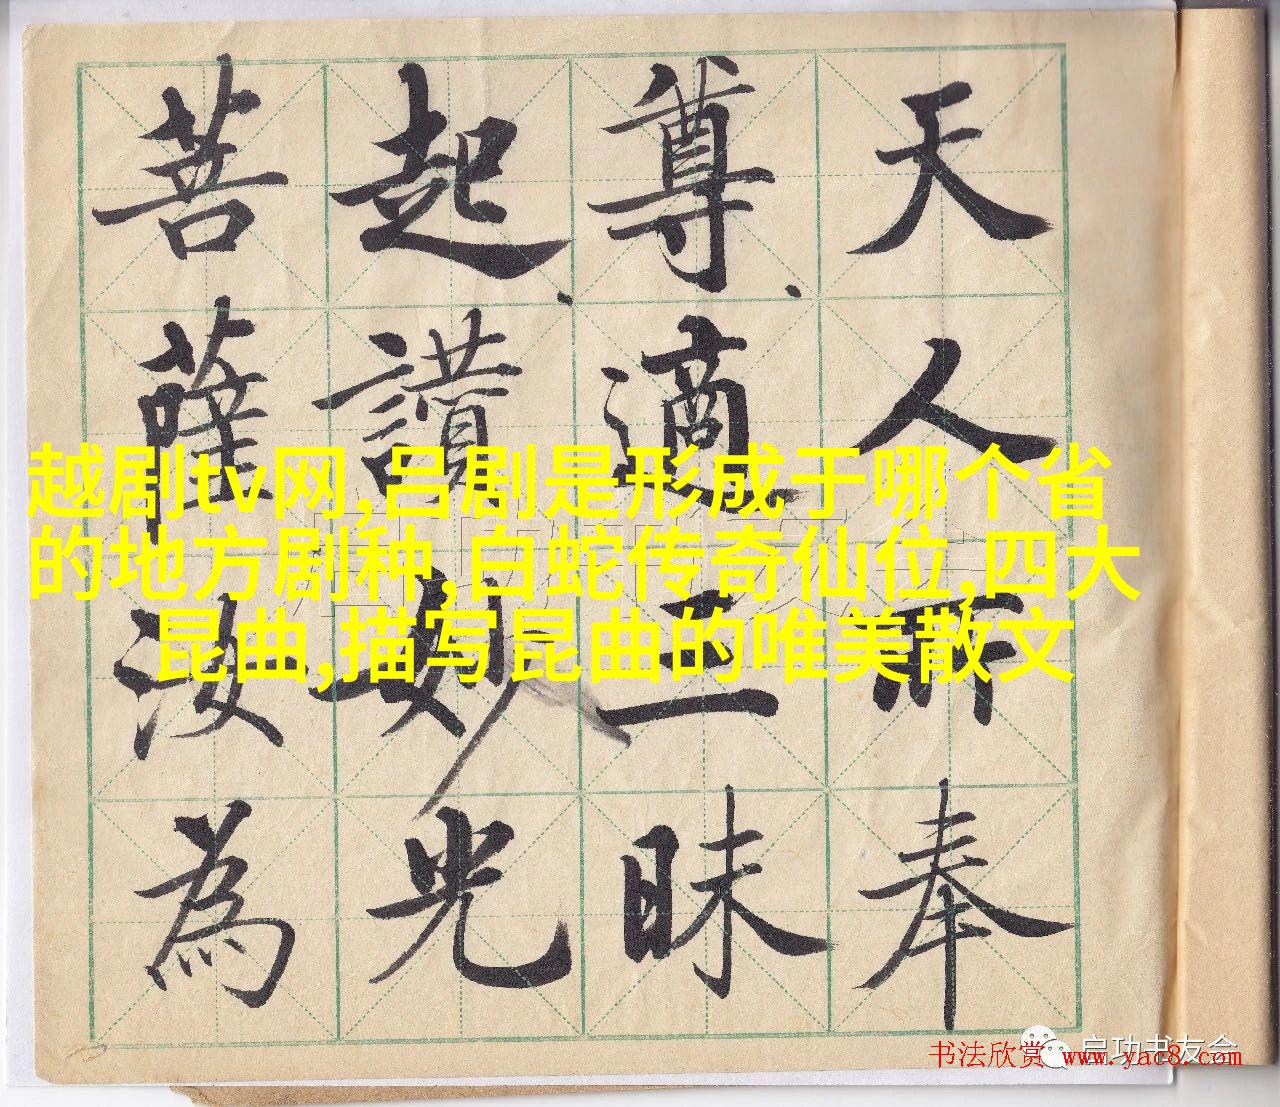 天人所奉
尊、適三昧
起、讃妙光
菩薩汝為
越剧tv网,吕剧是形成于哪个省
的地方剧种,白蛇传奇仙位,四大
昆曲,描写昆曲的唯美散文
启功书友会
书法欣赏 www.yac8.com